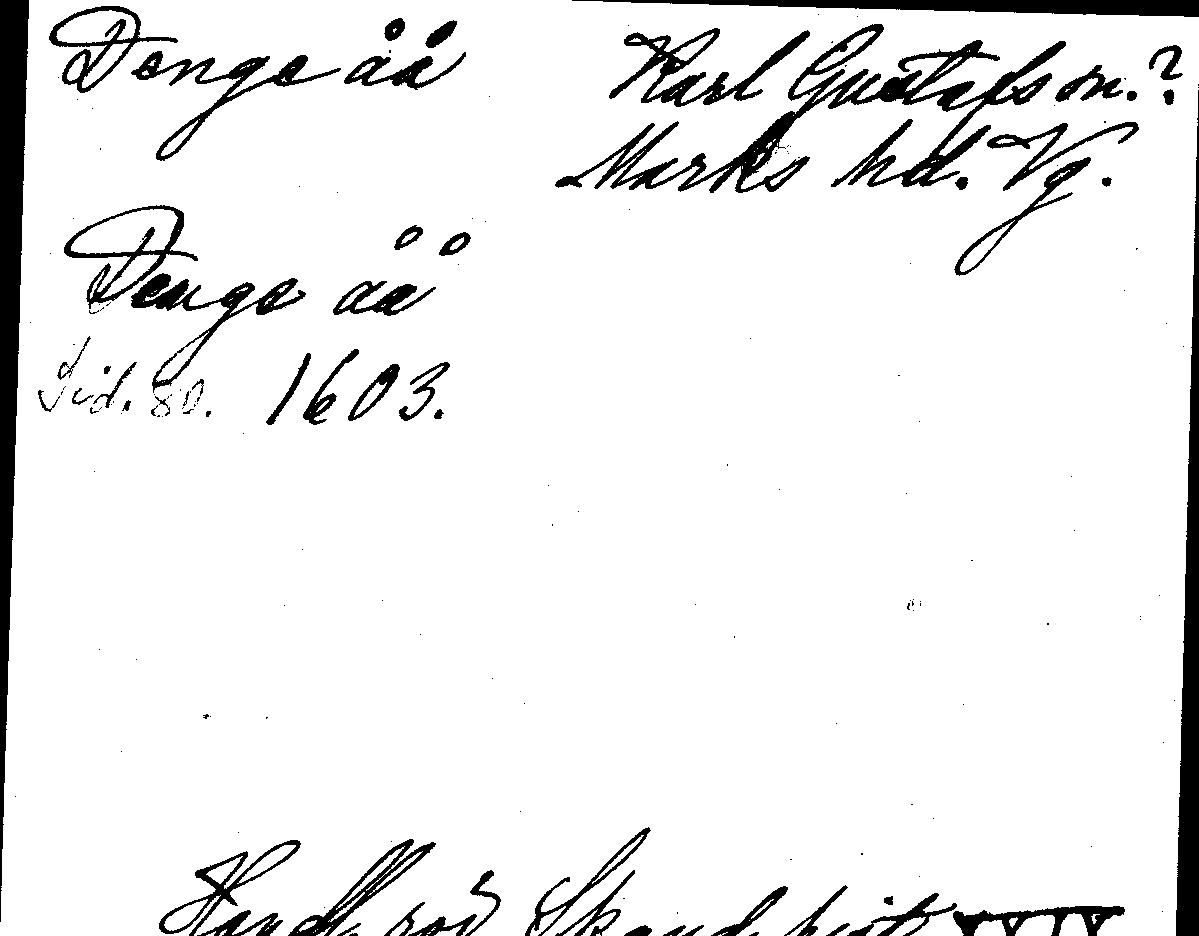 Dengeåå
Karl Gustafson.?
Marks hd. Vg.
Denge åå
Sid. 80. 1603.
Handl. rör Skand. hist. XXXIX